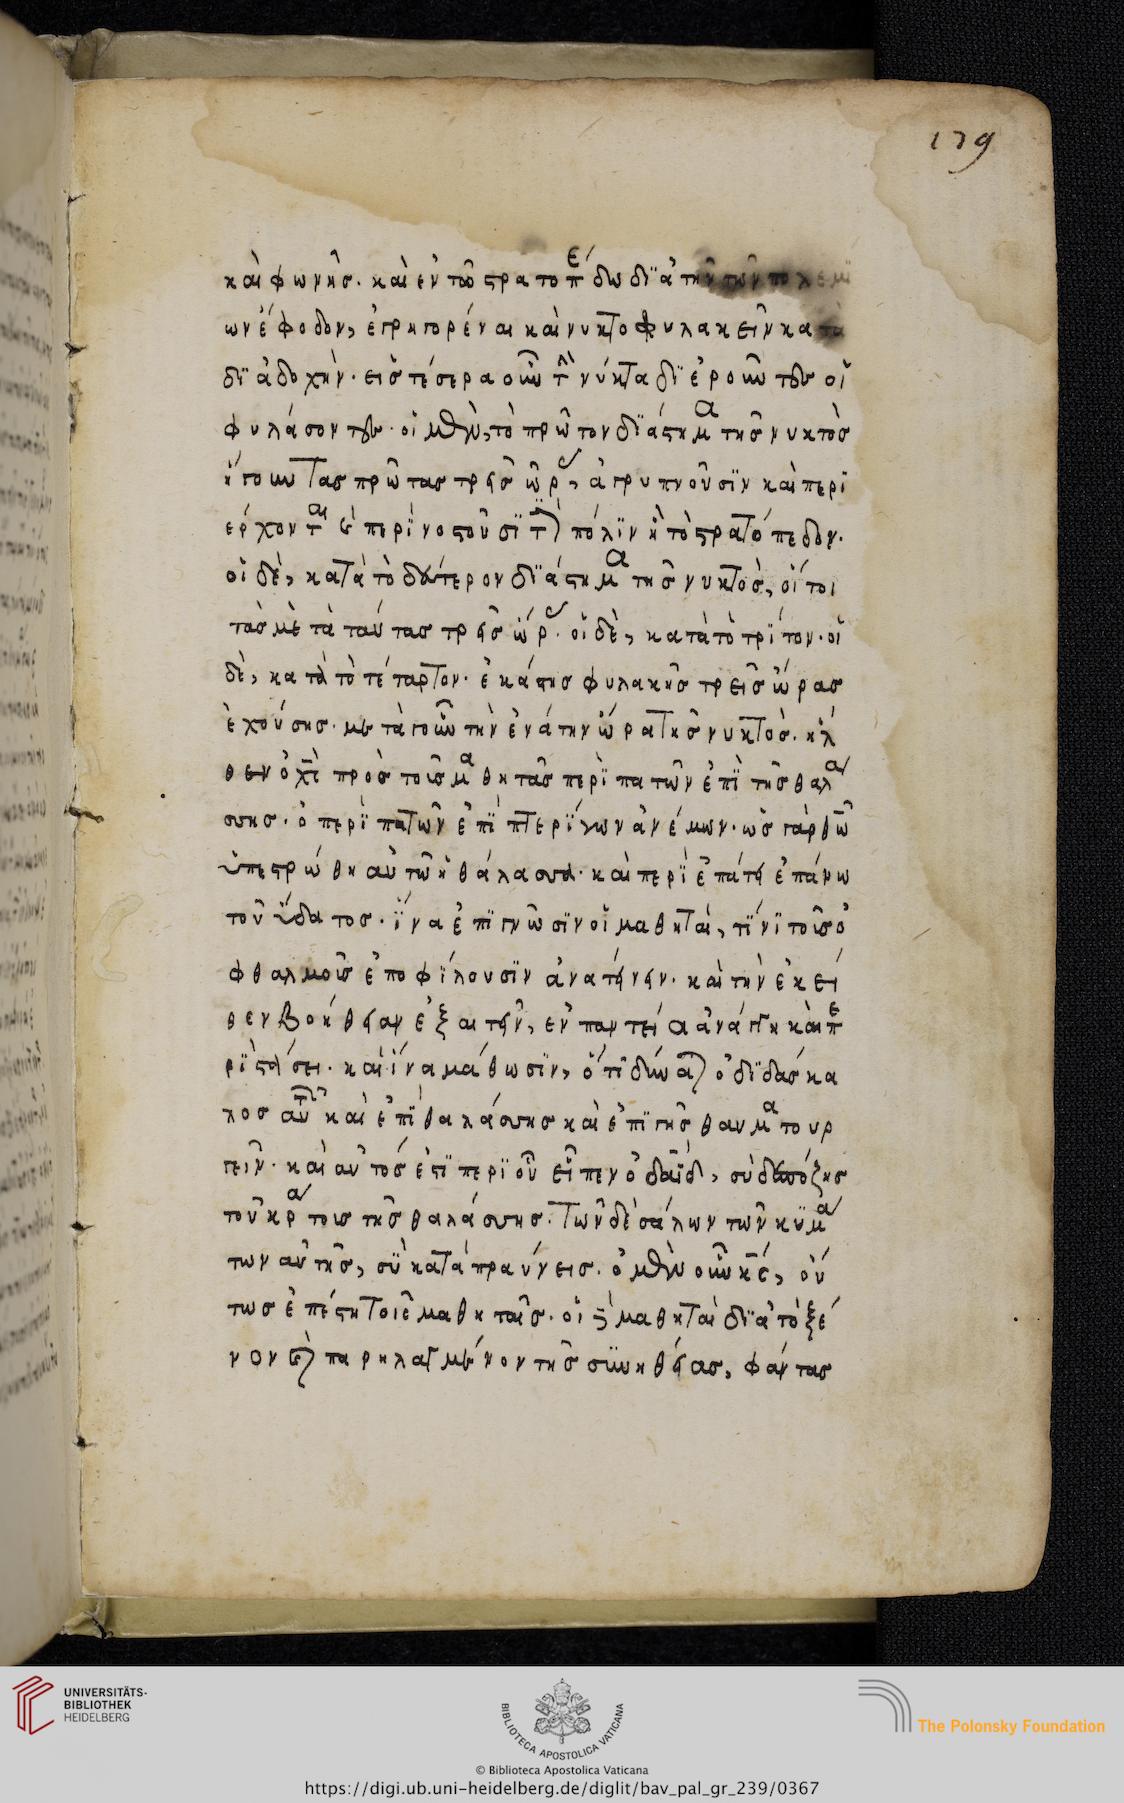 179
καὶ φωνῆς· καὶ ἐν τοῦ στρατοπέδω διὰ τὴν τῶν πολεμΐ
ων ἔφοδον, ἐγρηγορέναι καὶ νυκτοφυλακεῖν κατὰ
διαδοχὴν· εἰς τέσερα οὖν τὴν νύκτα διεροῦντες οἱ
φυλάσοντες· οἱ μὲν, τὸ πρῶτον διάστημα τῆς νυκτὸς
ἤγουν τὰς πρῶτας τρεῖς ὧρας, ἀγρυπνοῦσϊν καὶ περϊ
έρχονται καὶ περϊνοστοῦσϊ τὴν πόλϊν ἢ τὸ στρατόπεδον·
οἱ δὲ, κατὰ τὸ δεύτερον διάστημα τῆς νυκτὸς, οἵτοι
τὰς μὲτὰ ταύτας τρεῖς ὥρας· οἱ δὲ, κατὰ τὸ τρϊτον· οἱ
δὲ, κατὰ τὸ τέταρτον· ἑκάστης φυλακῆς τρεῖς ὥρας
ἐχούσης· μετὰ γοῦν τὴν ἐνάτην ὥρα τῆς νυκτὸς· ἦλ
θεν ὁ χς πρὸς τοῖς μαθητὰς περϊπατῶν ἐπῒ τῆς θαλά
σσης· ὁ περϊπατῶν ἐπῒ πτερϊγων ἀνέμων· ὡς γὰρ θῶ
ὑπεστρώθη αὐτῶ ἡ θάλασσα· καὶ περϊεπάτει ἐπάνω
τοῦ ὕδατος· ἵνα ἐπϊγνῶσϊν οἱ μαθηταὶ, τϊνϊ τοῖς ὀ
φθαλμοῖς ἐποφϊλουσϊν ἀνατείνειν· καὶ τὴν ἐκεῖ
θεν βοήθειαν ἐξαιτεῖν, ἐν παντεία ἀνάγκη καὶ πε
ρϊστάσει· καὶ ἵνα μάθωσϊν, ὅτϊ δύναται ὁ διδάσκα
λος αὐτῶν καὶ ἐπῒ θαλάσσης καὶ ἐπῒ γῆς θαυματουρ
γεῖν· καὶ αὐτός ἐστϊ περϊ οὗ εἶπεν ὁ δαδ, σὺ δεσπόζης
τοῦ κράτους τῆς θαλάσσης· Τῶν δὲ σάλων τῶν κϋμά
των αὐτῆς, σῢ καταπραύνεις· ὁ μὲν οὖν κς, οὕ
τως ἐπέστη τοῖς μαθηταῖς· οἱ δὲ μαθηταὶ διὰ τὸ ξέ
νον καὶ παρηλαγμένον τῆς σϋνηθείας, φάντασ
UNIVERSITÄTS-
BIBLIOTHEK
HEIDELBERG
BIBLIOTECA APOSTOLICA VATICANA
The Polonsky Foundation
© Biblioteca Apostolica Vaticana
https://digi.ub.uni-heidelberg.de/diglit/bav_pal_gr_239/0367